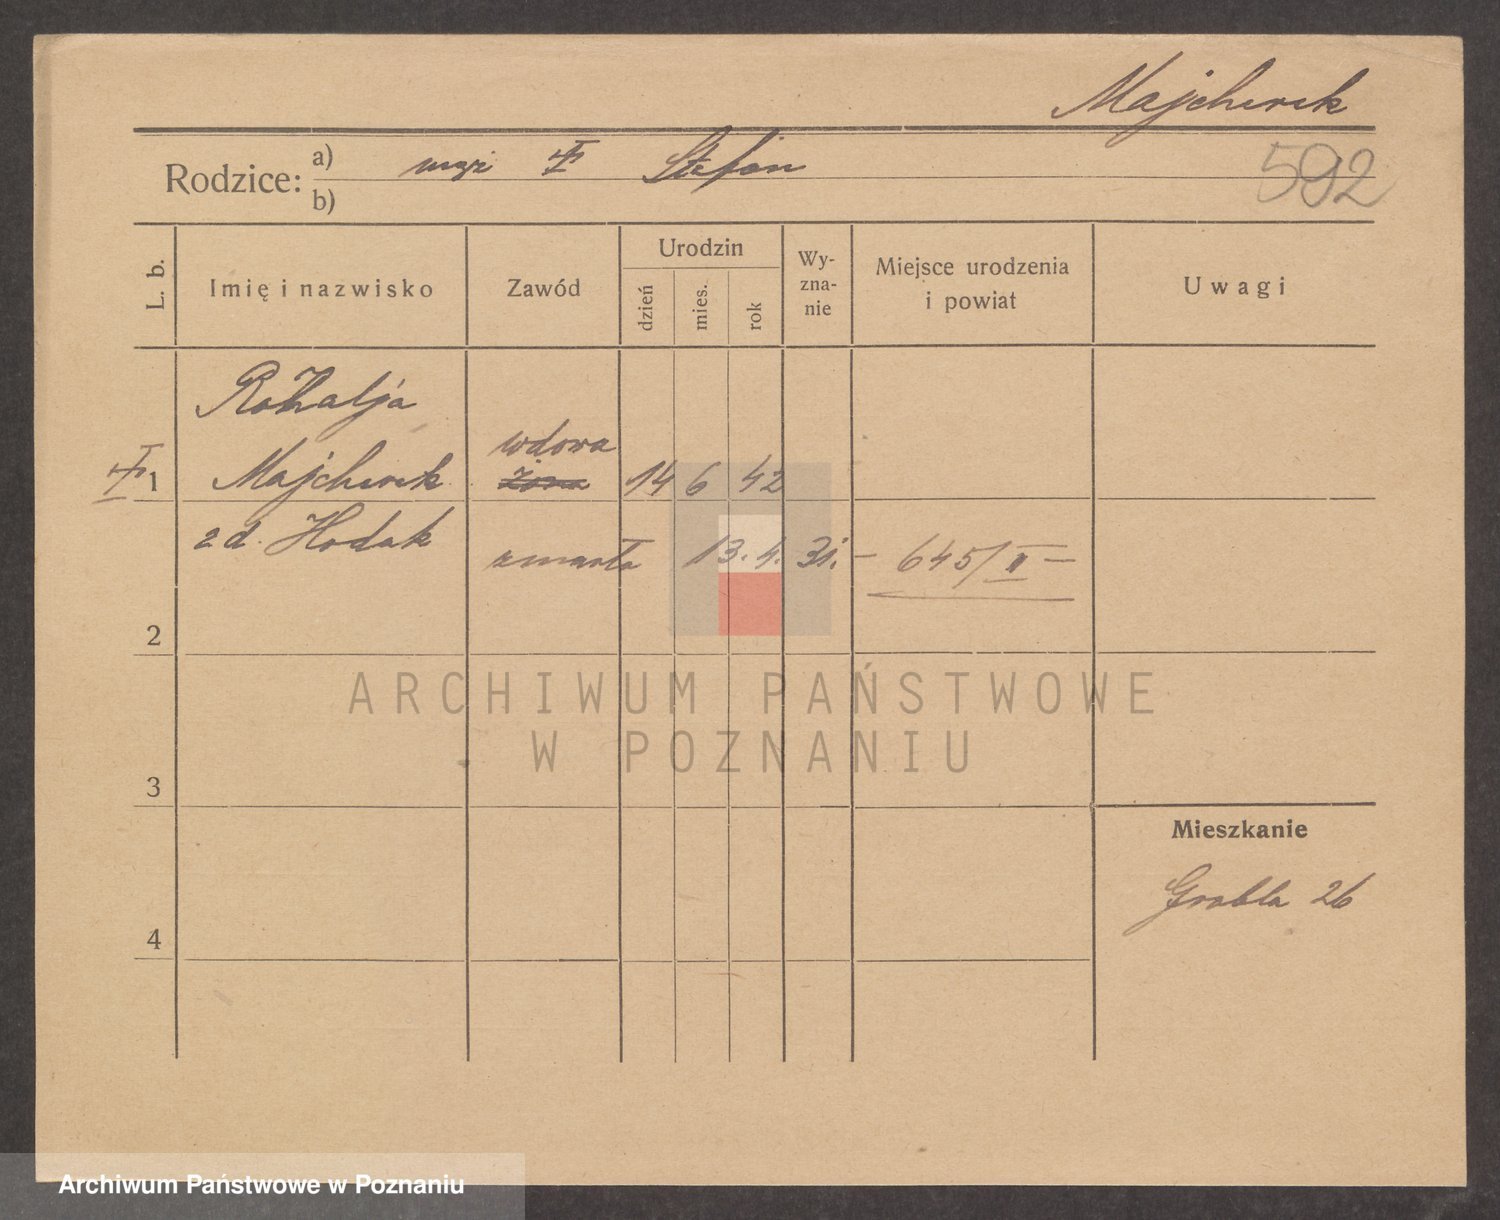 Majcherek
592
Rodzice: a) mąż Stefan
b)
L. b.
Imię i nazwisko
Zawód
Urodzin
dzień
mies.
rok
Wy-
zna-
nie
Miejsce urodzenia
i powiat
Uwagi
Rozalja
wdowa
1 Majcherek żona 14 6 42
z d. Hodak
zmarła 13. 4. 31. – 645/II –
2
3
4
Mieszkanie
Grobla 26
ARCHIWUM PAŃSTWOWE
W POZNANIU
Archiwum Państwowe w Poznaniu